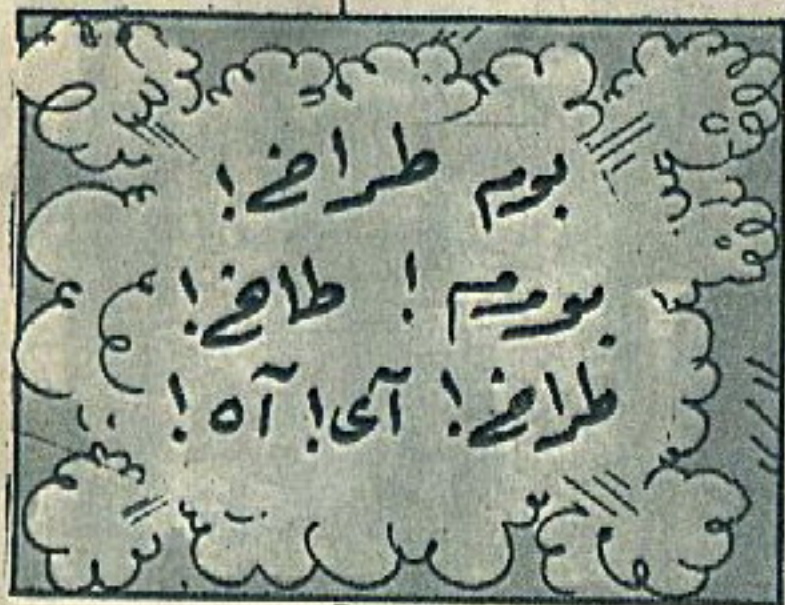 بوم طراخ!
بومم! طاخ!
طراخ! آی! آه!